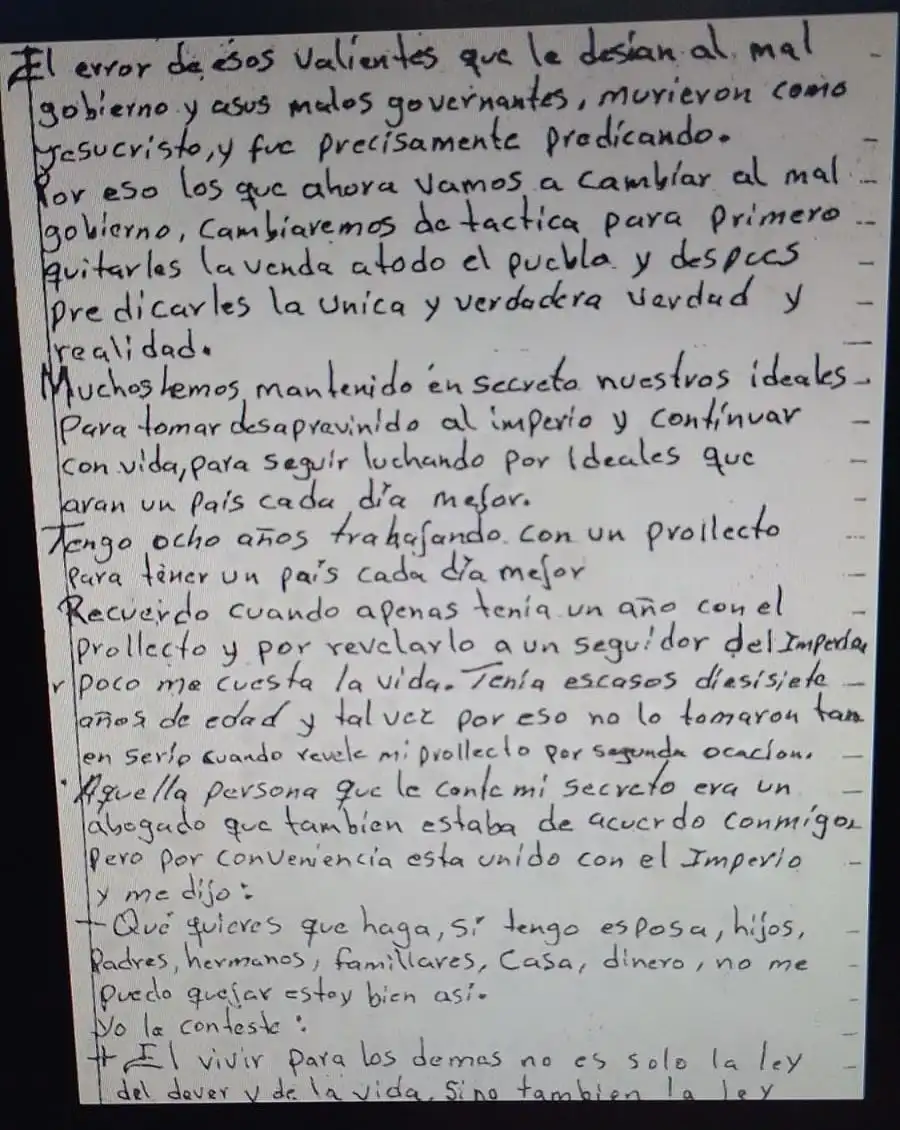 El error de esos valientes que le desian al mal
gobierno y asus malos governantes, murieron como
Jesucristo, y fue precisamente predicando.
Por eso los que ahora vamos a cambiar al mal
gobierno, cambiaremos de tactica para primero
quitarles la venda atodo el pueblo y despees
predicarles la unica y verdadera verdad y
realidad.
Muchos hemos mantenido en secreto nuestros ideales
Para tomar desapravinido al imperio y continuar
con vida, para seguir luchando por Ideales que
aran un País cada día mejor.
Tengo ocho años trabajando con un prollecto
para tener un país cada día mejor
Recuerdo cuando apenas tenía un año con el
prollecto y por revelarlo a un seguidor del
poco me cuesta la vida. Tenía escasos diesisiete
años de edad y tal vez por eso no lo tomaron tan
en serio cuando revele mi prollecto por segunda ocacion.
Aquella persona que le conte mi secreto era un
abogado que tambien estaba de acuerdo conmigo,
pero por conveniencia esta unido con el Imperio
y me dijo:
- Qué quieres que haga, si tengo esposa, hijos,
Padres, hermanos, famillares, casa, dinero, no me
puedo quejar estoy bien así.
Yo le conteste:
+ El vivir para los demas no es solo la ley
del dever y de la vida, Sino tambien la ley